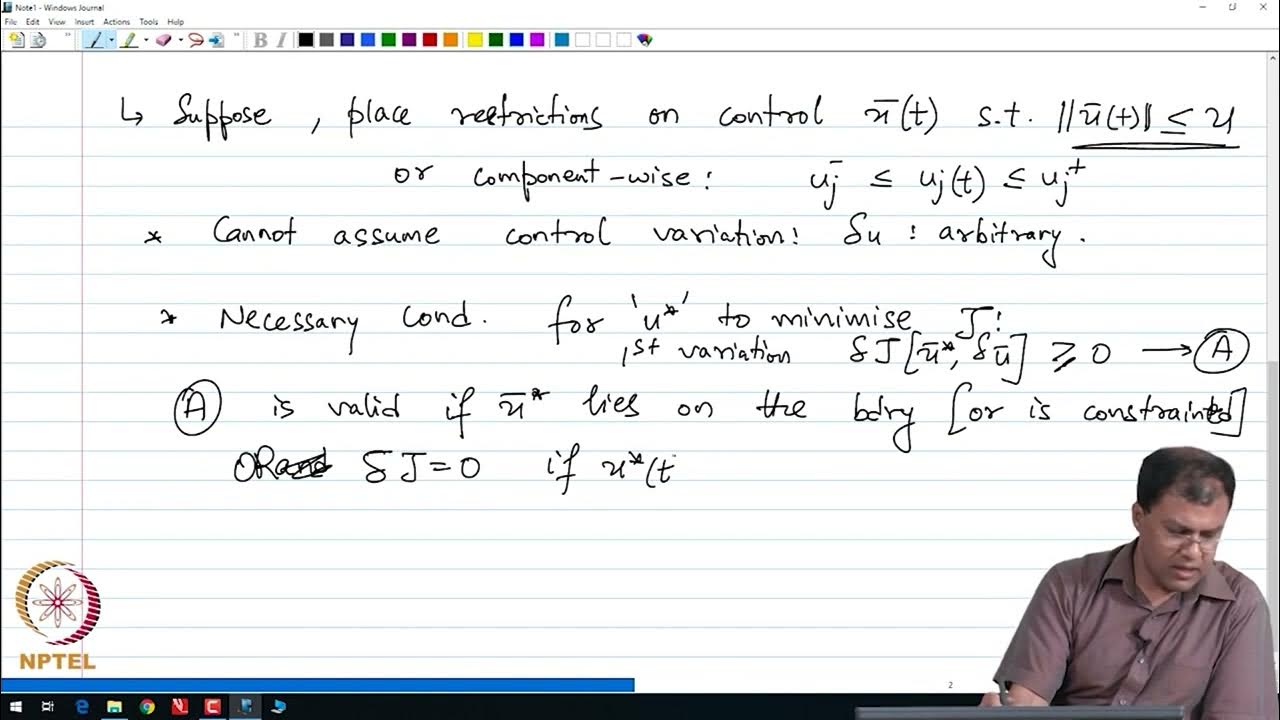 Note1 - Windows Journal
File Edit View Insert Actions Tools Help
B I
↳ Suppose, place restrictions on control ū(t) s.t. ||ū(t)|| ≤ U
or component-wise: uj⁻ ≤ uj(t) ≤ uj⁺
* Cannot assume control variation: δu : arbitrary.
* Necessary cond. for 'u*' to minimise J:
1st variation δJ[ū*, δū] ≥ 0 → Ⓐ
Ⓐ is valid if ū* lies on the bdry [or is constrained]
OR δJ = 0 if u*(t
NPTEL
2